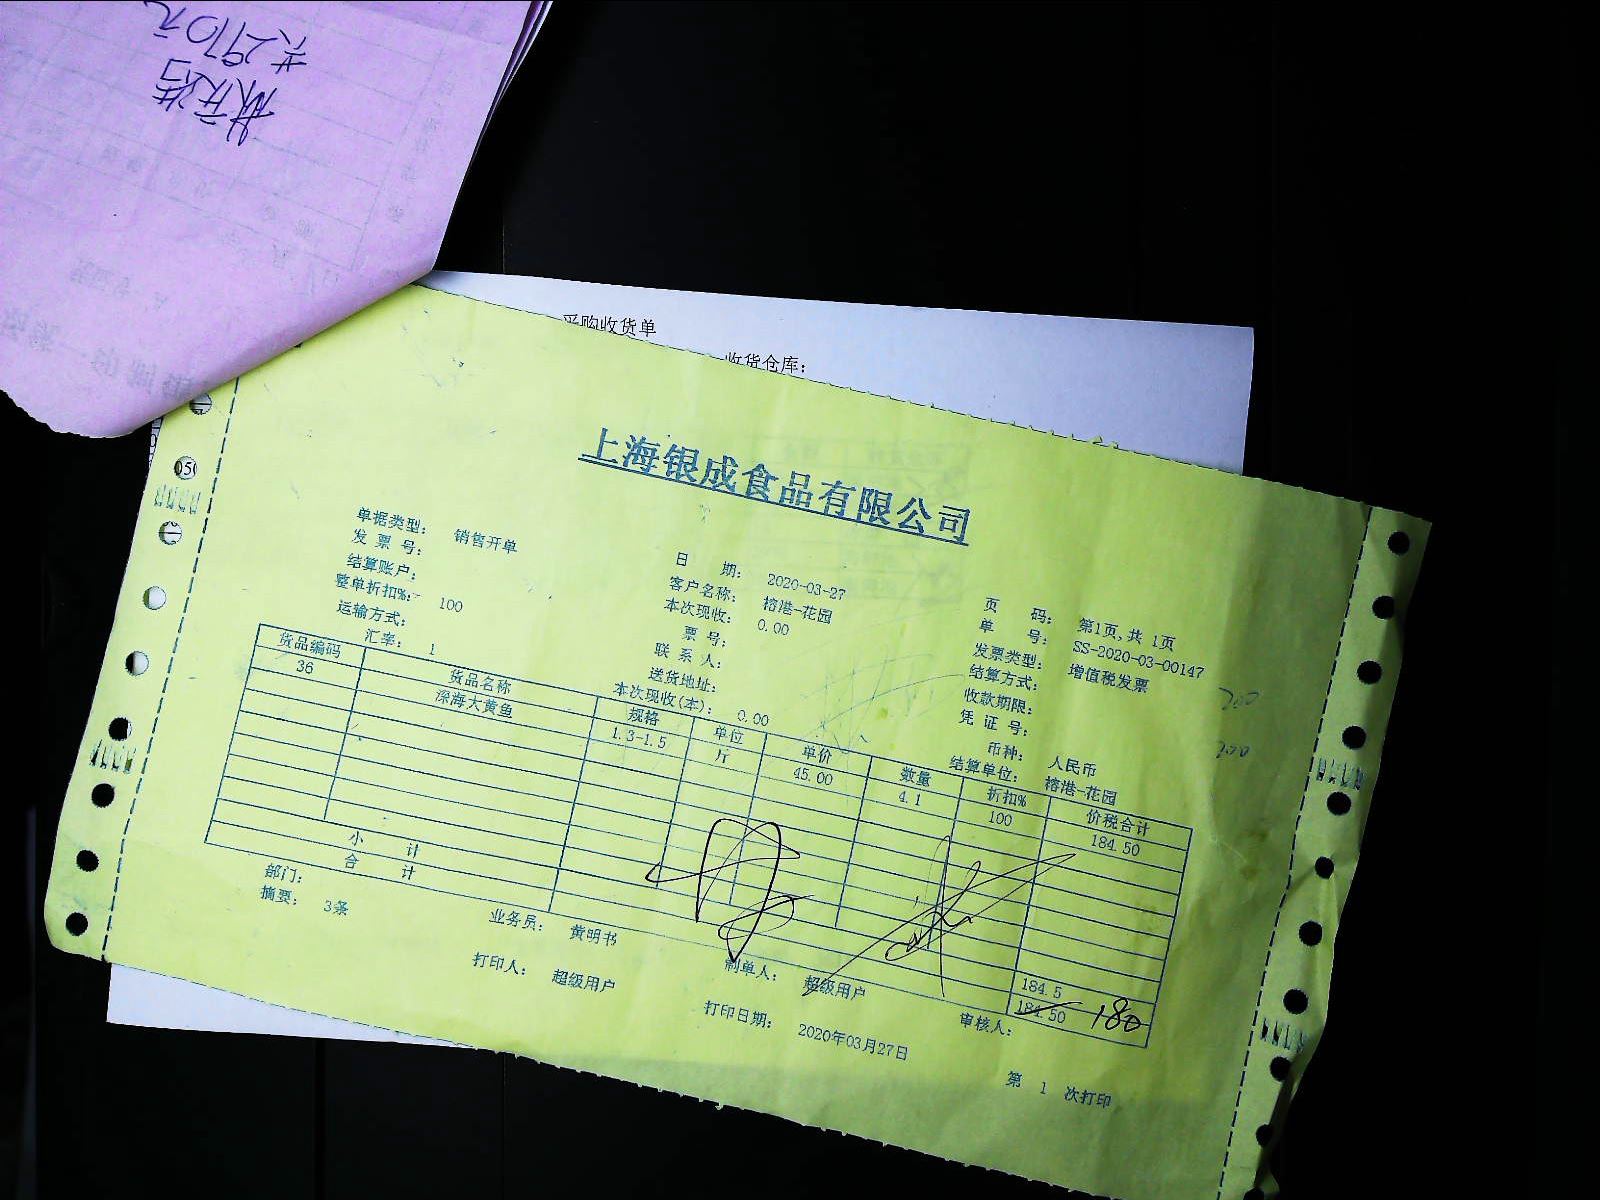 共2970元
采购收货单
收货仓库:
上海银成食品有限公司
单据类型: 销售开单
发票号:
结算账户:
整单折扣%: 100
运输方式:
汇率: 1
日期: 2020-03-27
客户名称: 榕港-花园
本次现收: 0.00
票号:
联系人:
送货地址:
本次现收(本): 0.00
页码: 第1页,共 1页
单号: SS-2020-03-00147
发票类型: 增值税发票
结算方式:
收款期限:
凭证号:
币种: 人民币
结算单位: 榕港-花园
货品编码 货品名称 规格 单位 单价 数量 折扣% 价税合计
36 深海大黄鱼 1.3-1.5 斤 45.00 4.1 100 184.50
小计 184.5
合计 184.50 180
部门:
摘要: 3条
业务员: 黄明书
制单人: 超级用户
审核人:
打印人: 超级用户
打印日期: 2020年03月27日
第 1 次打印